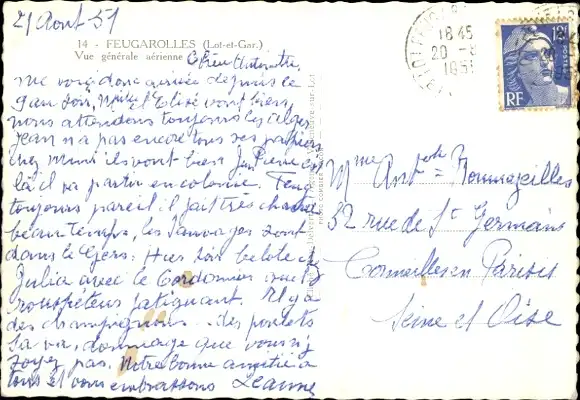 21 Aout 51
14 - FEUGAROLLES (Lot-et-Gar.)
Vue générale aérienne
Chère Antoinette,
me voici donc arrivée depuis le
vont bien,
nous attendons toujours les
Jean n'a pas encore tous ses papiers
chez mimi ils vont bien Jean Pierre est
là il va partir en colonie. Feug
toujours pareil il fait très chaud
beau temps, les Sauvages sont
dans le Gers. Hier soir belote chez
Julia avec le Cordonnier
rouspéteur fatiguant. Il y a
des champignons.. des poulets
sa va, dommage que vous n'y
soyez pas. Notre bonne amitié à
tous et vous embrassons Jeanne
18 45
20 -8
1951
12F
POSTES
RF
Mme Antte
32 rue de St Germains
Cormeilles en Parisis
Seine et Oise